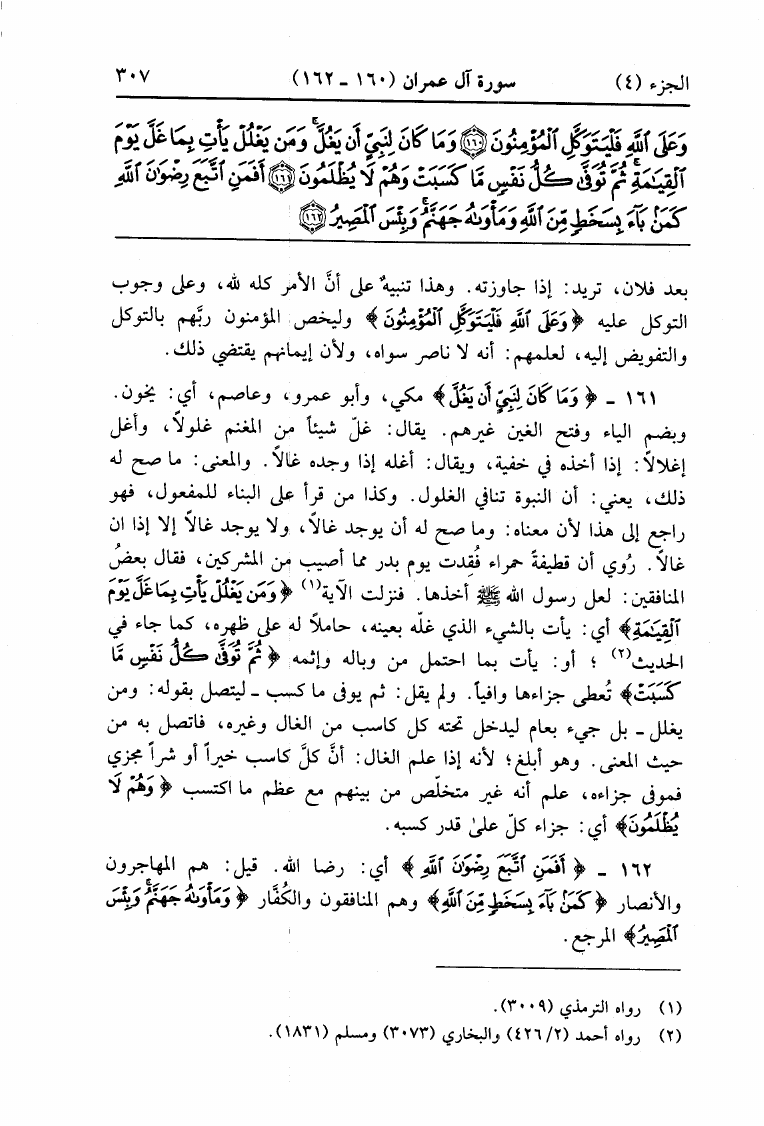 الجزء (٤) سورة آل عمران (١٦٠ ـ ١٦٢) ٣٠٧
وَعَلَى ٱللَّهِ فَلْيَتَوَكَّلِ ٱلْمُؤْمِنُونَ ١٦٠ وَمَا كَانَ لِنَبِيٍّ أَن يَغُلَّ ۚ وَمَن يَغْلُلْ يَأْتِ بِمَا غَلَّ يَوْمَ
ٱلْقِيَٰمَةِ ۚ ثُمَّ تُوَفَّىٰ كُلُّ نَفْسٍ مَّا كَسَبَتْ وَهُمْ لَا يُظْلَمُونَ ١٦١ أَفَمَنِ ٱتَّبَعَ رِضْوَٰنَ ٱللَّهِ
كَمَنۢ بَآءَ بِسَخَطٍ مِّنَ ٱللَّهِ وَمَأْوَىٰهُ جَهَنَّمُ ۚ وَبِئْسَ ٱلْمَصِيرُ ١٦٢
بعد فلان، تريد: إذا جاوزته. وهذا تنبيهٌ على أنَّ الأمر كله لله، وعلى وجوب
التوكل عليه ﴿ وَعَلَى ٱللَّهِ فَلْيَتَوَكَّلِ ٱلْمُؤْمِنُونَ ﴾ وليخص المؤمنون ربَّهم بالتوكل
والتفويض إليه، لعلمهم: أنه لا ناصر سواه، ولأن إيمانهم يقتضي ذلك.
١٦١ ـ ﴿ وَمَا كَانَ لِنَبِيٍّ أَن يَغُلَّ ﴾ مكي، وأبو عمرو، وعاصم، أي: يخون.
وبضم الياء وفتح الغين غيرهم. يقال: غلّ شيئاً من المغنم غلولاً، وأغل
إغلالاً: إذا أخذه في خفية، ويقال: أغله إذا وجده غالاً. والمعنى: ما صح له
ذلك، يعني: أن النبوة تنافي الغلول. وكذا من قرأ على البناء للمفعول، فهو
راجع إلى هذا لأن معناه: وما صح له أن يوجد غالاً، ولا يوجد غالاً إلا إذا ان
غالاً. رُوي أن قطيفةً حمراء فُقِدت يوم بدر مما أصيب من المشركين، فقال بعضُ
المنافقين: لعل رسول الله ﷺ أخذها. فنزلت الآية(١) ﴿ وَمَن يَغْلُلْ يَأْتِ بِمَا غَلَّ يَوْمَ
ٱلْقِيَٰمَةِ ﴾ أي: يأت بالشيء الذي غلّه بعينه، حاملاً له على ظهره، كما جاء في
الحديث(٢) ؛ أو: يأت بما احتمل من وباله وإثمه ﴿ ثُمَّ تُوَفَّىٰ كُلُّ نَفْسٍ مَّا
كَسَبَتْ ﴾ تُعطى جزاءها وافياً. ولم يقل: ثم يوفى ما كسب ـ ليتصل بقوله: ومن
يغلل ـ بل جيء بعام ليدخل تحته كل كاسب من الغال وغيره، فاتصل به من
حيث المعنى. وهو أبلغ؛ لأنه إذا علم الغال: أنَّ كلَّ كاسب خيراً أو شراً مجزي
فموفى جزاءه، علم أنه غير متخلّص من بينهم مع عظم ما اكتسب ﴿ وَهُمْ لَا
يُظْلَمُونَ ﴾ أي: جزاء كلّ على قدر كسبه.
١٦٢ ـ ﴿ أَفَمَنِ ٱتَّبَعَ رِضْوَٰنَ ٱللَّهِ ﴾ أي: رضا الله. قيل: هم المهاجرون
والأنصار ﴿ كَمَنۢ بَآءَ بِسَخَطٍ مِّنَ ٱللَّهِ ﴾ وهم المنافقون والكُفَّار ﴿ وَمَأْوَىٰهُ جَهَنَّمُ ۚ وَبِئْسَ
ٱلْمَصِيرُ ﴾ المرجع.
(١) رواه الترمذي (٣٠٠٩).
(٢) رواه أحمد (٢/ ٤٢٦) والبخاري (٣٠٧٣) ومسلم (١٨٣١).